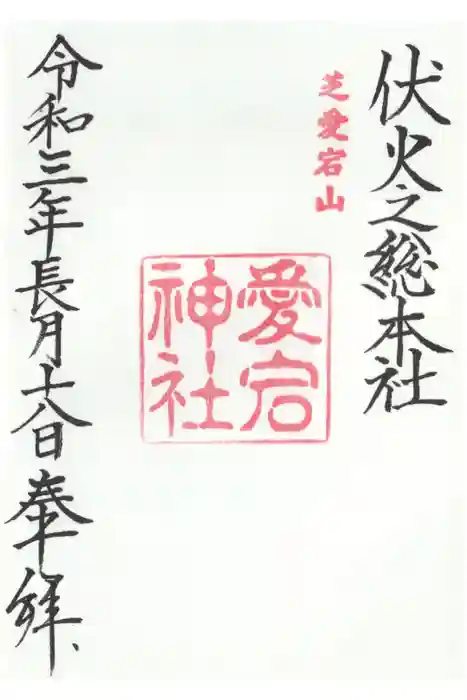 伏火之総本社
芝愛宕山
愛宕
神社
令和三年長月十八日奉拝